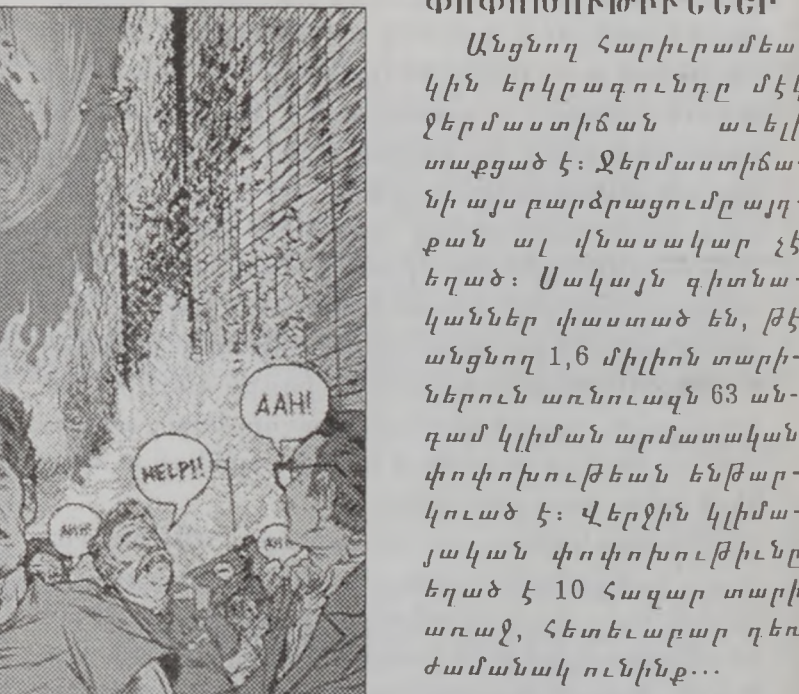 AAH!
HELP!!
ՓՈՓՈԽՈՒԹԻՒՆՆԵՐ
Անցնող հարիւրամեա-
կին երկրագունդը մէկ
ջերմաստիճան աւելի
տաքցած է։ Ջերմաստիճա-
նի այս բարձրացումը այդ-
քան ալ վնասակար չէ
եղած։ Սակայն գիտնա-
կաններ փաստած են, թէ
անցնող 1,6 միլիոն տարի-
ներուն առնուազն 63 ան-
գամ կլիման արմատական
փոփոխութեան ենթար-
կուած է։ Վերջին կլիմա-
յական փոփոխութիւնը
եղած է 10 հազար տարի
առաջ, հետեւաբար դեռ
ժամանակ ունինք...